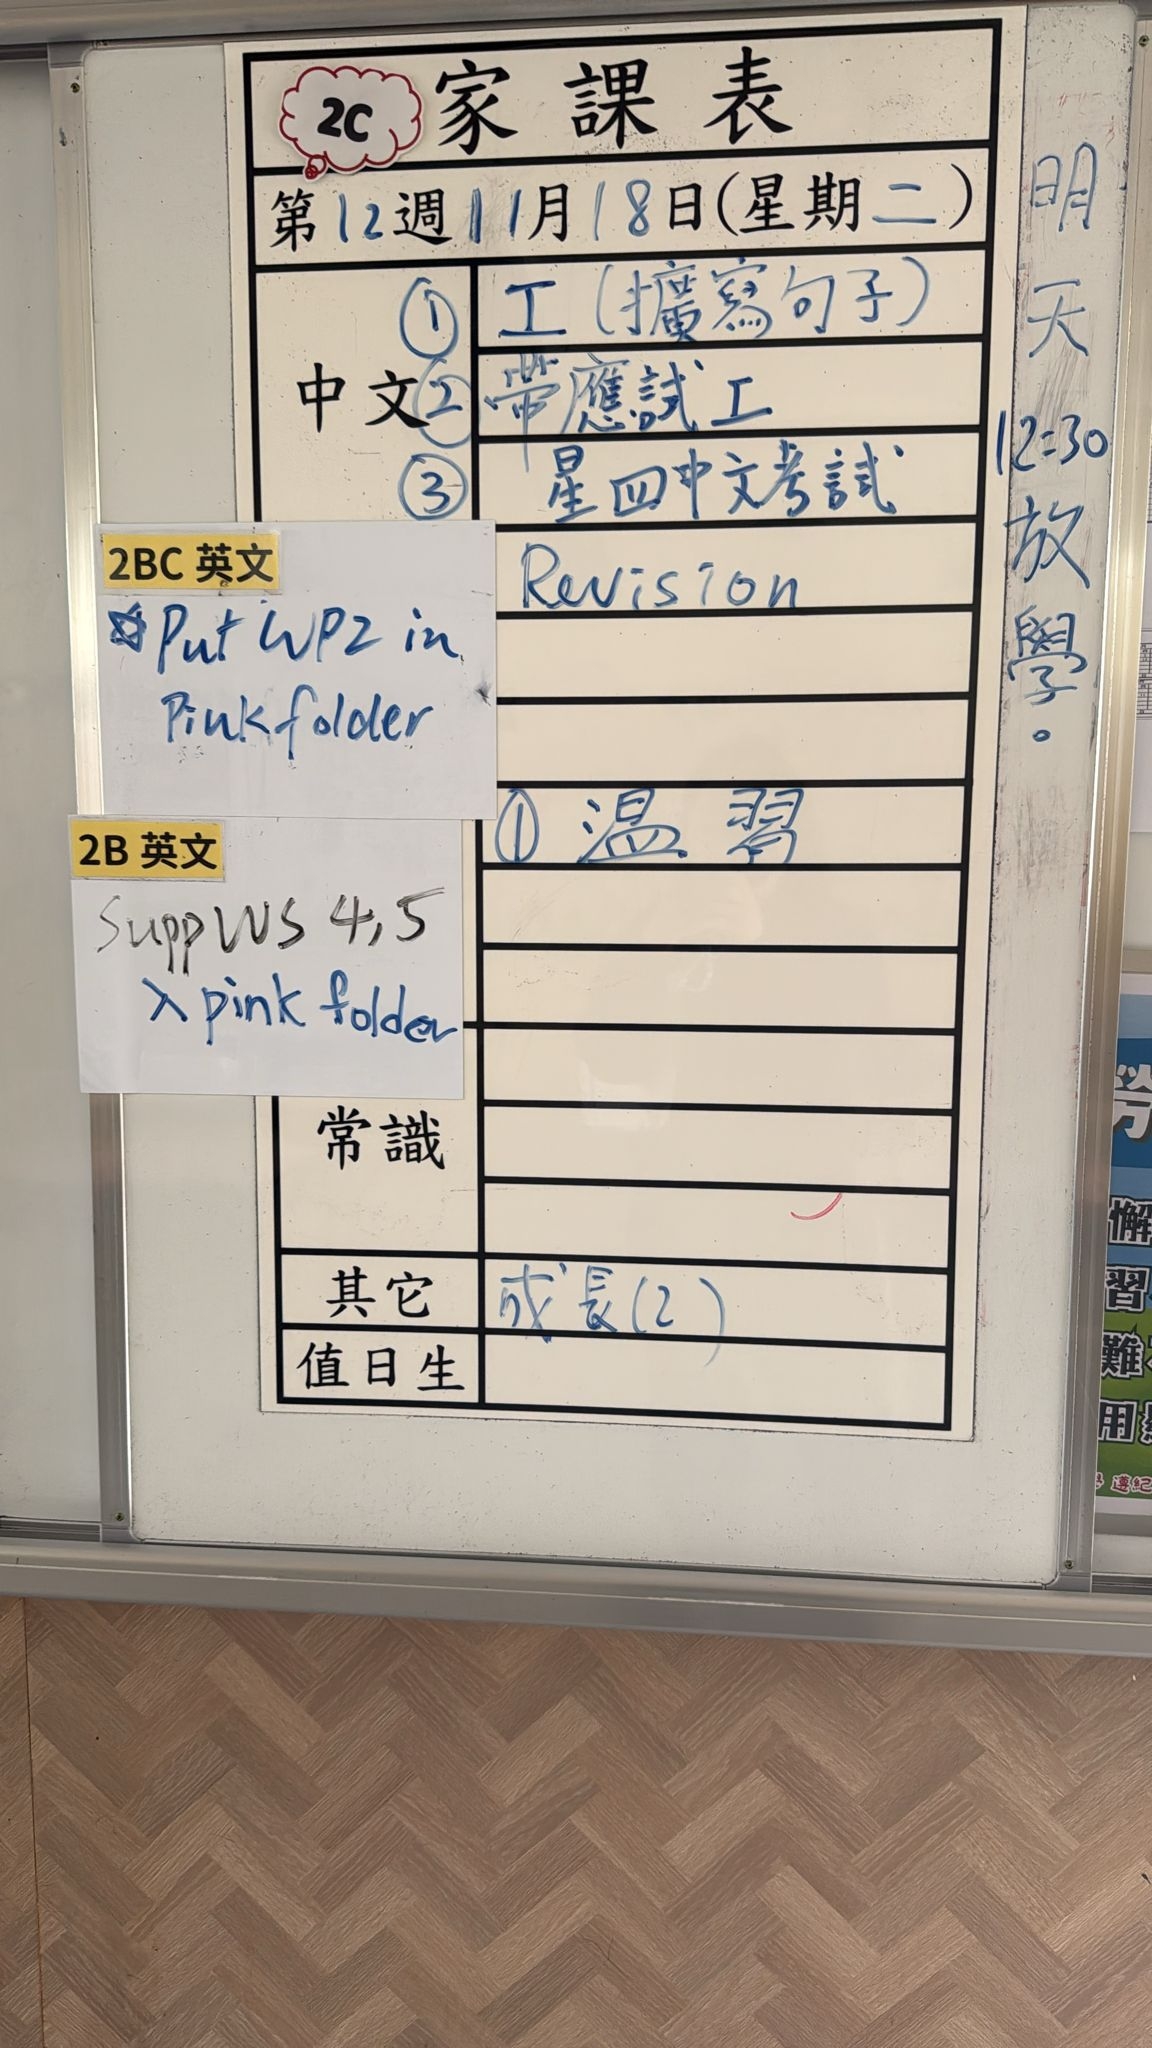 2C 家課表
第12週11月18日(星期二)
中文
① 工(擴寫句子)
② 帶應試工
③ 星四中文考試
2BC 英文
Put WP2 in
Pink folder
Revision
2B 英文
Supp WS 4,5
入 pink folder
① 温習
常識
其它
成長(2)
值日生
明天12:30放學。
習
難
用
遵紀